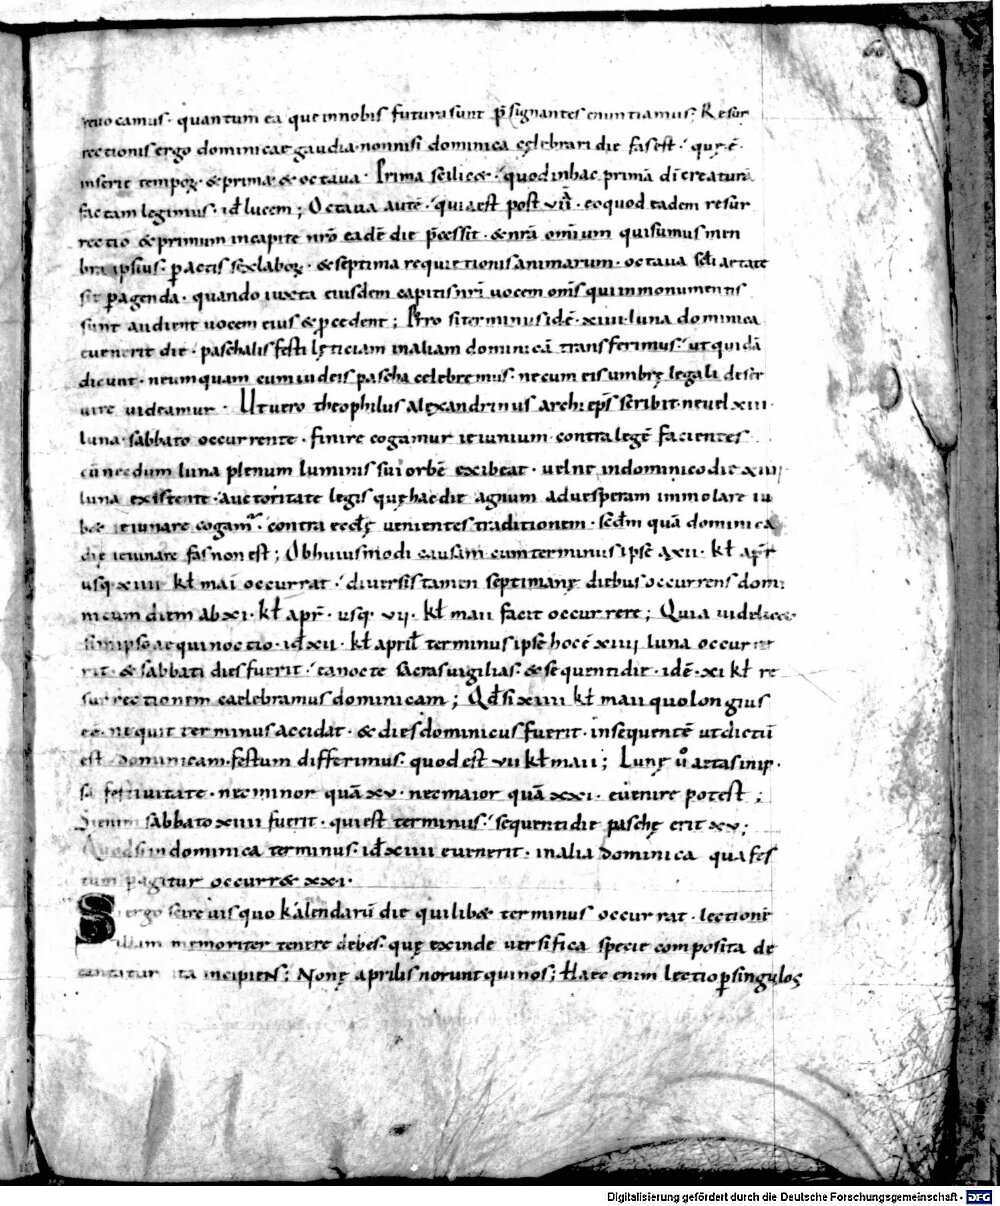 60
reuocamus· quantum ea que innobis futura sunt p̄signantes enuntiamus; Resur
rectionis ergo dominicae gaudia· nonnisi dominica cęlebrari die fas est· quę ē·
inserie tempoꝝ· & prima· & octaua· Prima scilic&· quod in hac primā dī creaturā
factam legimus· id lucem; Octaua autē· quia est post vii· eo quod eadem resur
rectio & primum incapite nr̄o eadē die p̄cessit· & nr̄a om̄ium qui sumus mem
bra ipsius· pactis sex laboꝝ· & septima requietionis animarum· octaua scłi aetate
sit pagenda· quando iuxta eiusdem capitis nr̄i uocem om̄s qui inmonumentis
sunt audient uocem eius & pcedent; Porro si terminus idē· xiiii· luna dominica
euenerit die· paschalis festi lęticiam inaliam dominicā transferimus· ut quidā
dicunt· ne umquam cum iudeis pascha celebremus· ne cum eis umbrę legali deser
uire uideamur· Ut uero theophilus alexandrinus archieps̄ scribit· ne uel xiii·
luna· sabbato occurrente· finire cogamur ieiunium· contra legē facientes
cū necdum luna plenum luminis sui orbē exibeat· uel ne indominico die xiiii·
luna existente· auctoritate legis quę hac die agnum aduesperam immolare iu
b& ieiunare cogam̄· contra eccłę uenientes traditionem· scd̄m quā dominica
dię ieiunare fas non est; Ob huiusmodi causam· cum terminus ipse axii· kł apr̄
usq· xiiii kł mai occurrat· diuersis tamen septimanę diebus occurrens domi
nicum diem ab xi· kł apr̄· usq· vii· kł maii facit occurrere; Quia uidelic&·
si in ipso aequinoctio· id xii· kł april̄ terminus ipse hoc ē xiiii luna occurre
rit· & sabbati dies fuerit· ea nocte sacras uigilias· & sequenti die· idē· xi kł re
surrectionem caelebramus dominicam; Qd̄ si xiiii kł maii quo longius
eē nequit terminus accidat· & dies dominicus fuerit· insequentē ut dictū
est dominicam· festum differimus· quod est vii kł maii; Lunę ů aetas in ip·
sa festiuitate· nec minor quā xv· nec maior quā xxi· euenire potest;
Si enim sabbato xiiii fuerit· qui est terminus· sequenti die paschę erit xv;
Quod si indominica terminus· id xiiii euenerit· in alia dominica qua fes
tum pagitur occurr& xxi·
Si ergo scire uis quo kalendarū die quilib& terminus occurrat· lectionē
illam memoriter tenere debes· quę exinde uersifica specie composita de
cantatur ita incipiens; Nonę aprilis norunt quinos; Haec enim lectio p singulos
Digitalisierung gefördert durch die Deutsche Forschungsgemeinschaft - DFG